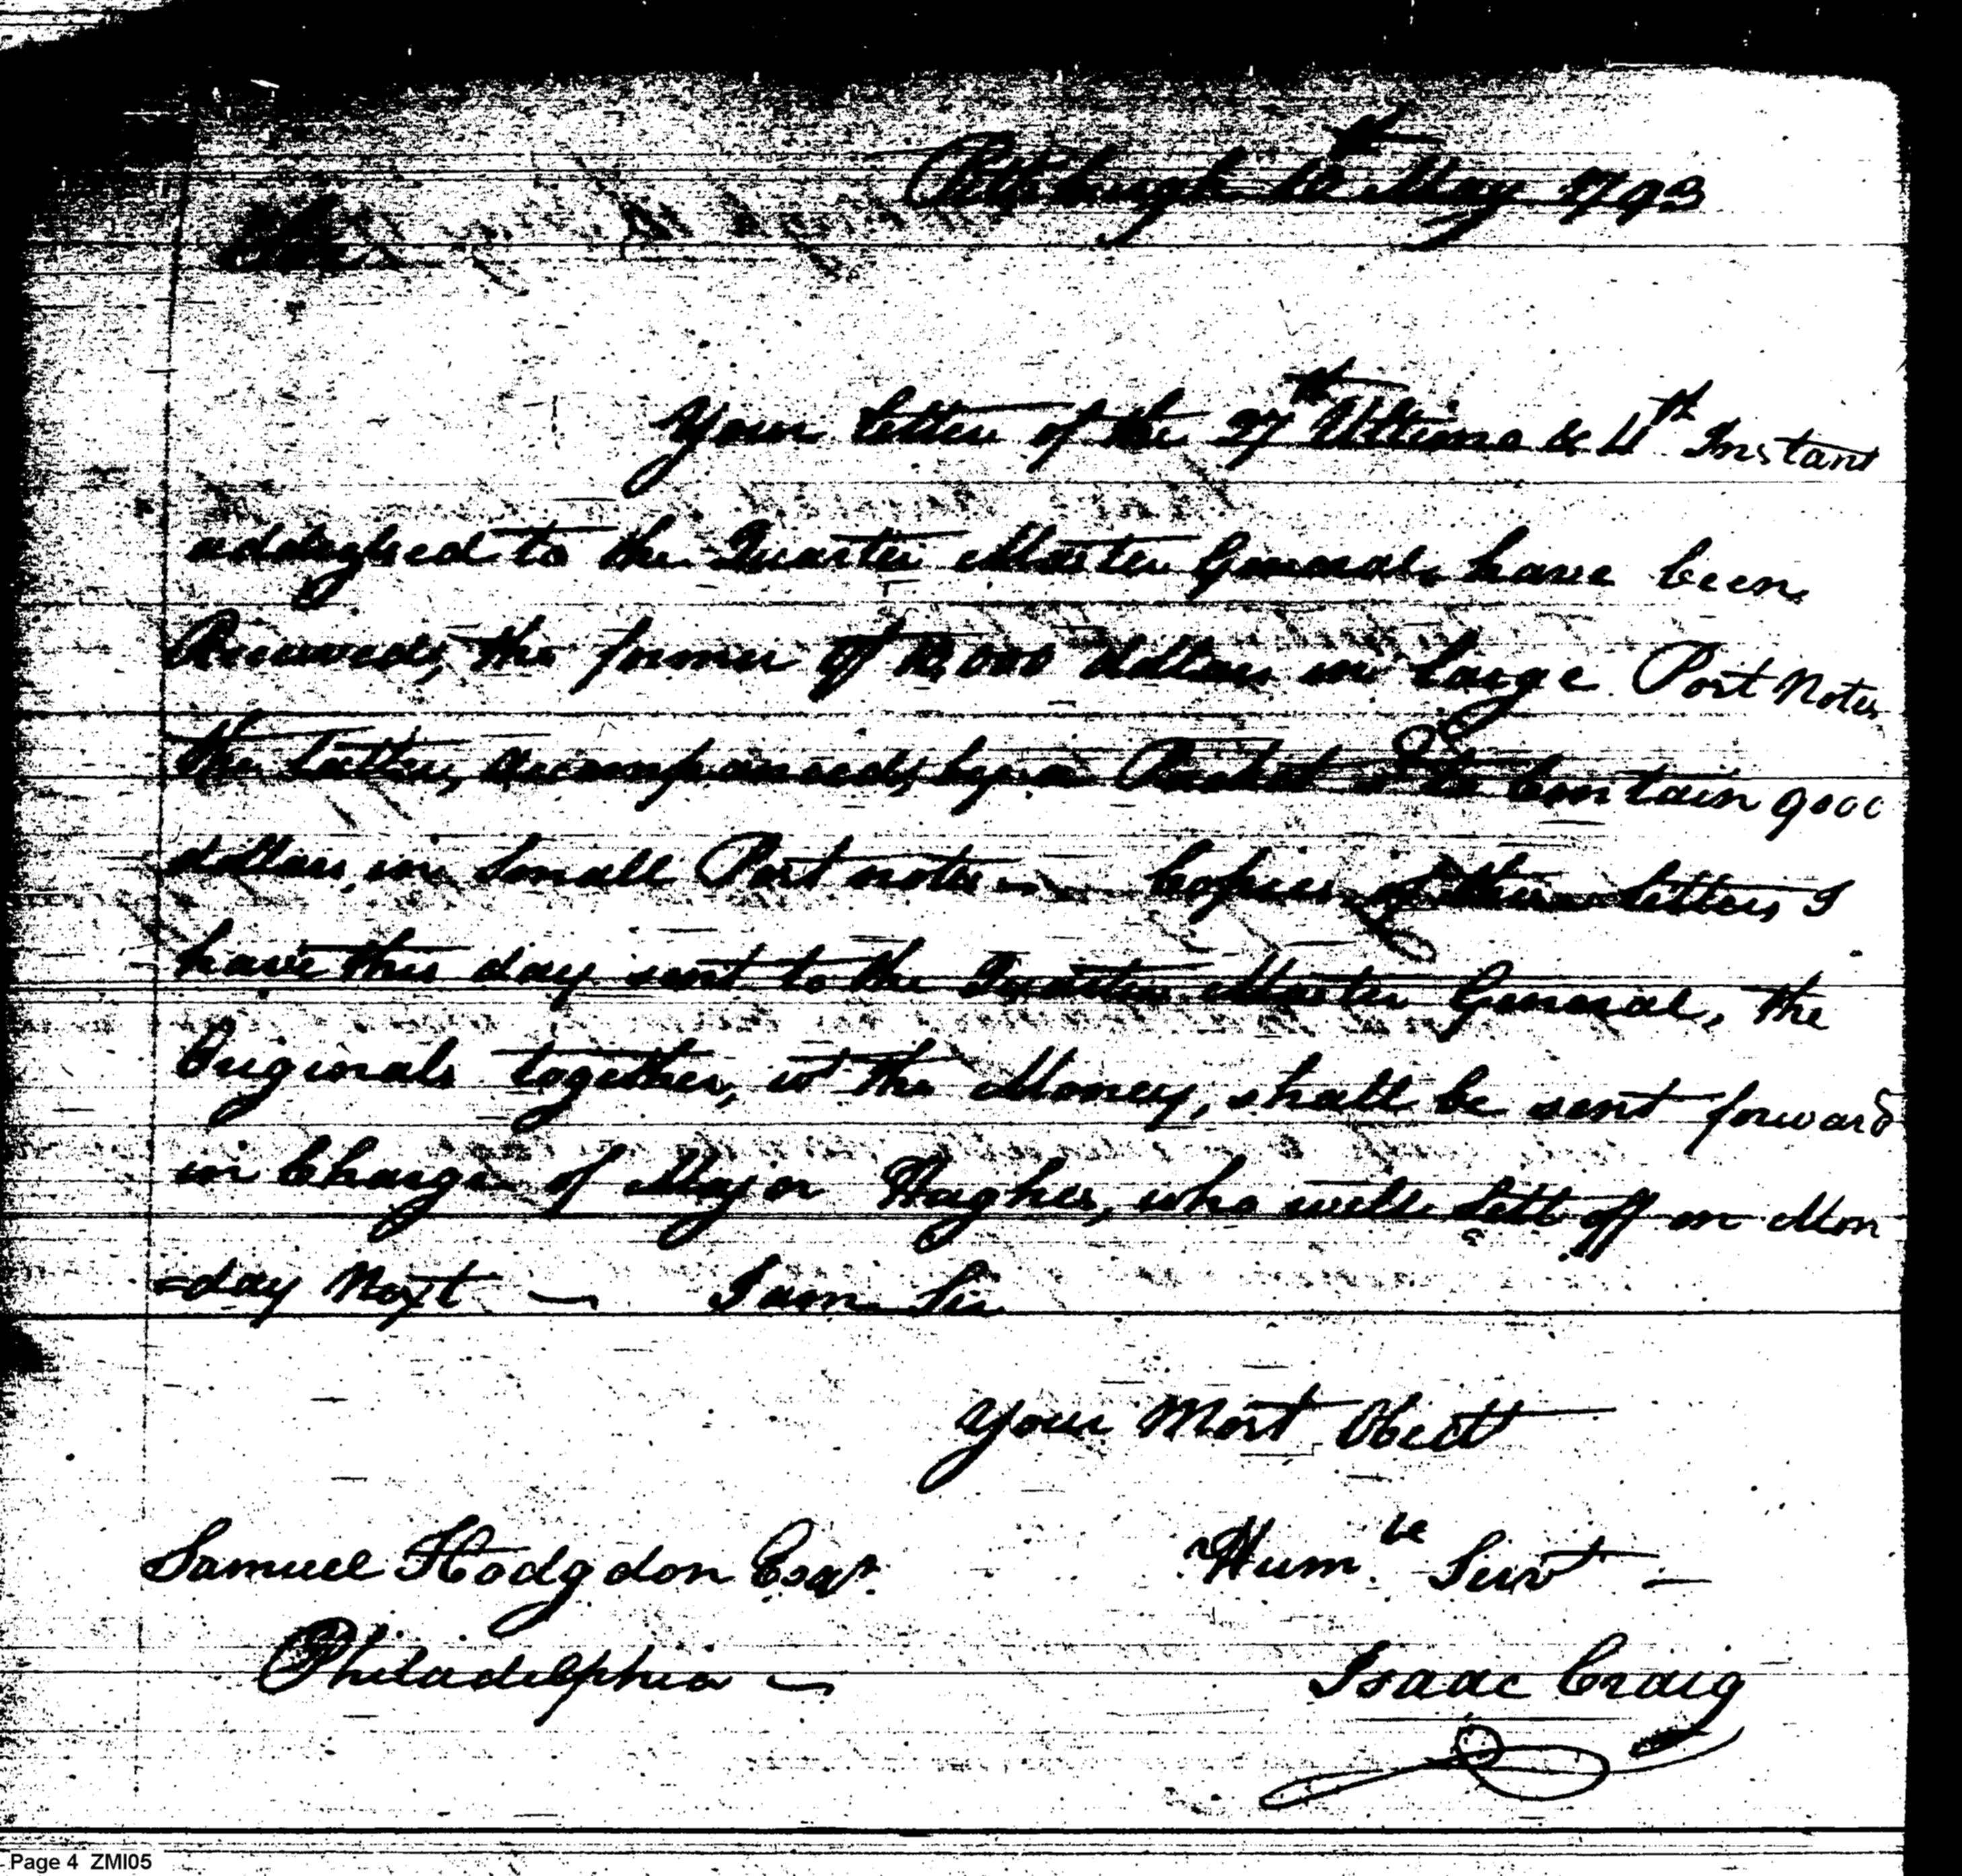 Pittsburgh 10th May 1793
Sir
Your letter of the 27th Ultimo & 4th Instant
addressed to the Quarter Master General, have been
Received, the former of 10,000 dollars in large Post Notes
the latter, accompanied, by a Packet to Contain 9000
dollars, in Small Post notes — Copies of these letters I
have this day sent to the Quarter Master General, the
Originals together, wt the Money, shall be sent forward
in Charge of Major Hughes, who will sett off on Mon
=day Next — I am Sir
Your Most Obedt
Humble Servt —
Samuel Hodgdon Esqr.
Philadelphia —
Isaac Craig
Page 4 ZMI05